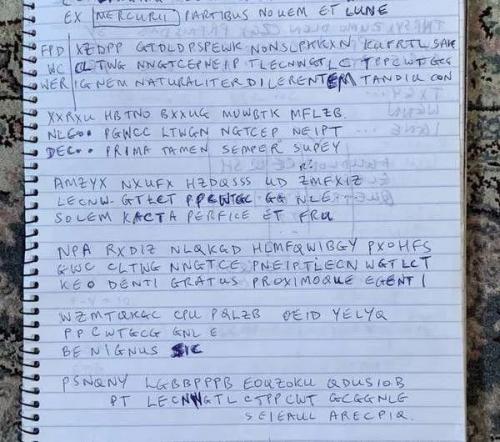 EX MERCURII PARTIBUS NOUEM ET LUNE
FPD XZDPP GTDLDPSPEWK NONSLPKKGXN KUFRTL
WC CLTWG NNGTCEPNEIP TLECNWGTLC TPPCWTGCG
WER IGNEM NATURALITER DILERENTEM TANDIU CON
XXRXU HBTNO BXXUG MUWBTK MFLZB.
NLG00 PGWCC LTWGN NGTCEP NEIPT
DEC.. PRIMA TAMEN SEMPER SUPEY
AMZYX NXUFX HZDQSSS UD ZMFXIZ
LECNW GTLCT PPCWTGC GG NLE
SOLEM KACTA PERFICE ET FRU
NPA RXDIZ NLQKGD HLMFQWIBGY PXOHFS
GWC CLTWG NNGTCE PNEIPTLECN WGTLCT
KEO DENTI GRATUS PROXIMOQUE EGENTI
WZMTQKGC CPU PQLZB OEID YELYQ
PPCWTGCG GNL E
BENIGNUS SIC
PSNQNY LGBBPPPB EOQZOKU QDUSIOB
PT LECNWGTL CTPPCWT GCGGNLG
SEIEAUL ARECPIQ.